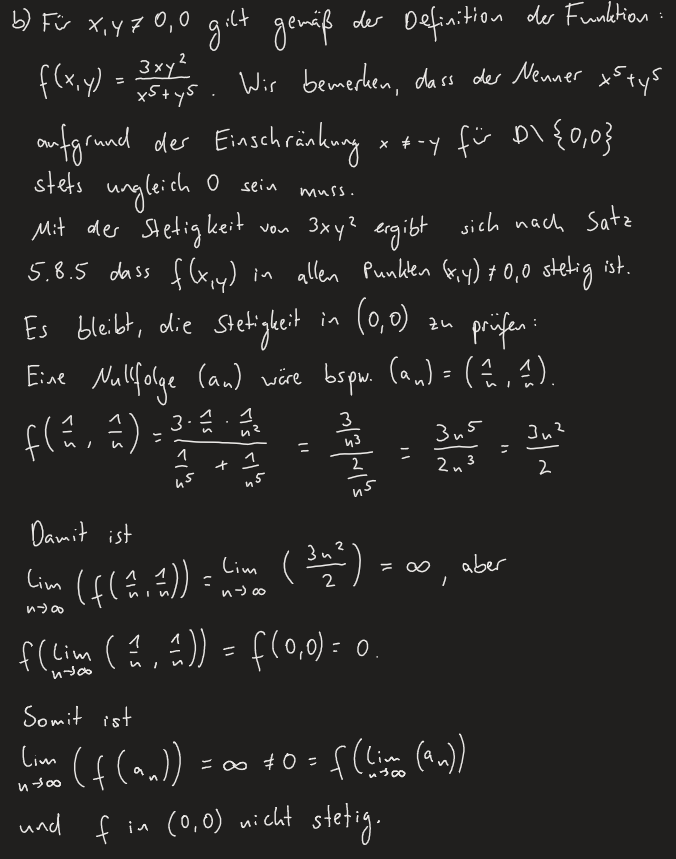 b) Für x,y ≠ 0,0 gilt gemäß der Definition der Funktion:
f(x,y) = 3xy²/(x⁵+y⁵). Wir bemerken, dass der Nenner x⁵+y⁵
aufgrund der Einschränkung x ≠ -y für D\{0,0}
stets ungleich 0 sein muss.
Mit der Stetigkeit von 3xy² ergibt sich nach Satz
5.8.5 dass f(x,y) in allen Punkten (x,y) ≠ 0,0 stetig ist.
Es bleibt, die Stetigkeit in (0,0) zu prüfen:
Eine Nullfolge (aₙ) wäre bspw. (aₙ) = (1/n, 1/n).
f(1/n, 1/n) = (3·1/n·1/n²)/(1/n⁵ + 1/n⁵) = (3/n³)/(2/n⁵) = 3n⁵/2n³ = 3n²/2
Damit ist
lim n→∞ (f(1/n, 1/n)) = lim n→∞ (3n²/2) = ∞, aber
f(lim n→∞ (1/n, 1/n)) = f(0,0) = 0.
Somit ist
lim n→∞ (f(aₙ)) = ∞ ≠ 0 = f(lim n→∞ (aₙ))
und f in (0,0) nicht stetig.